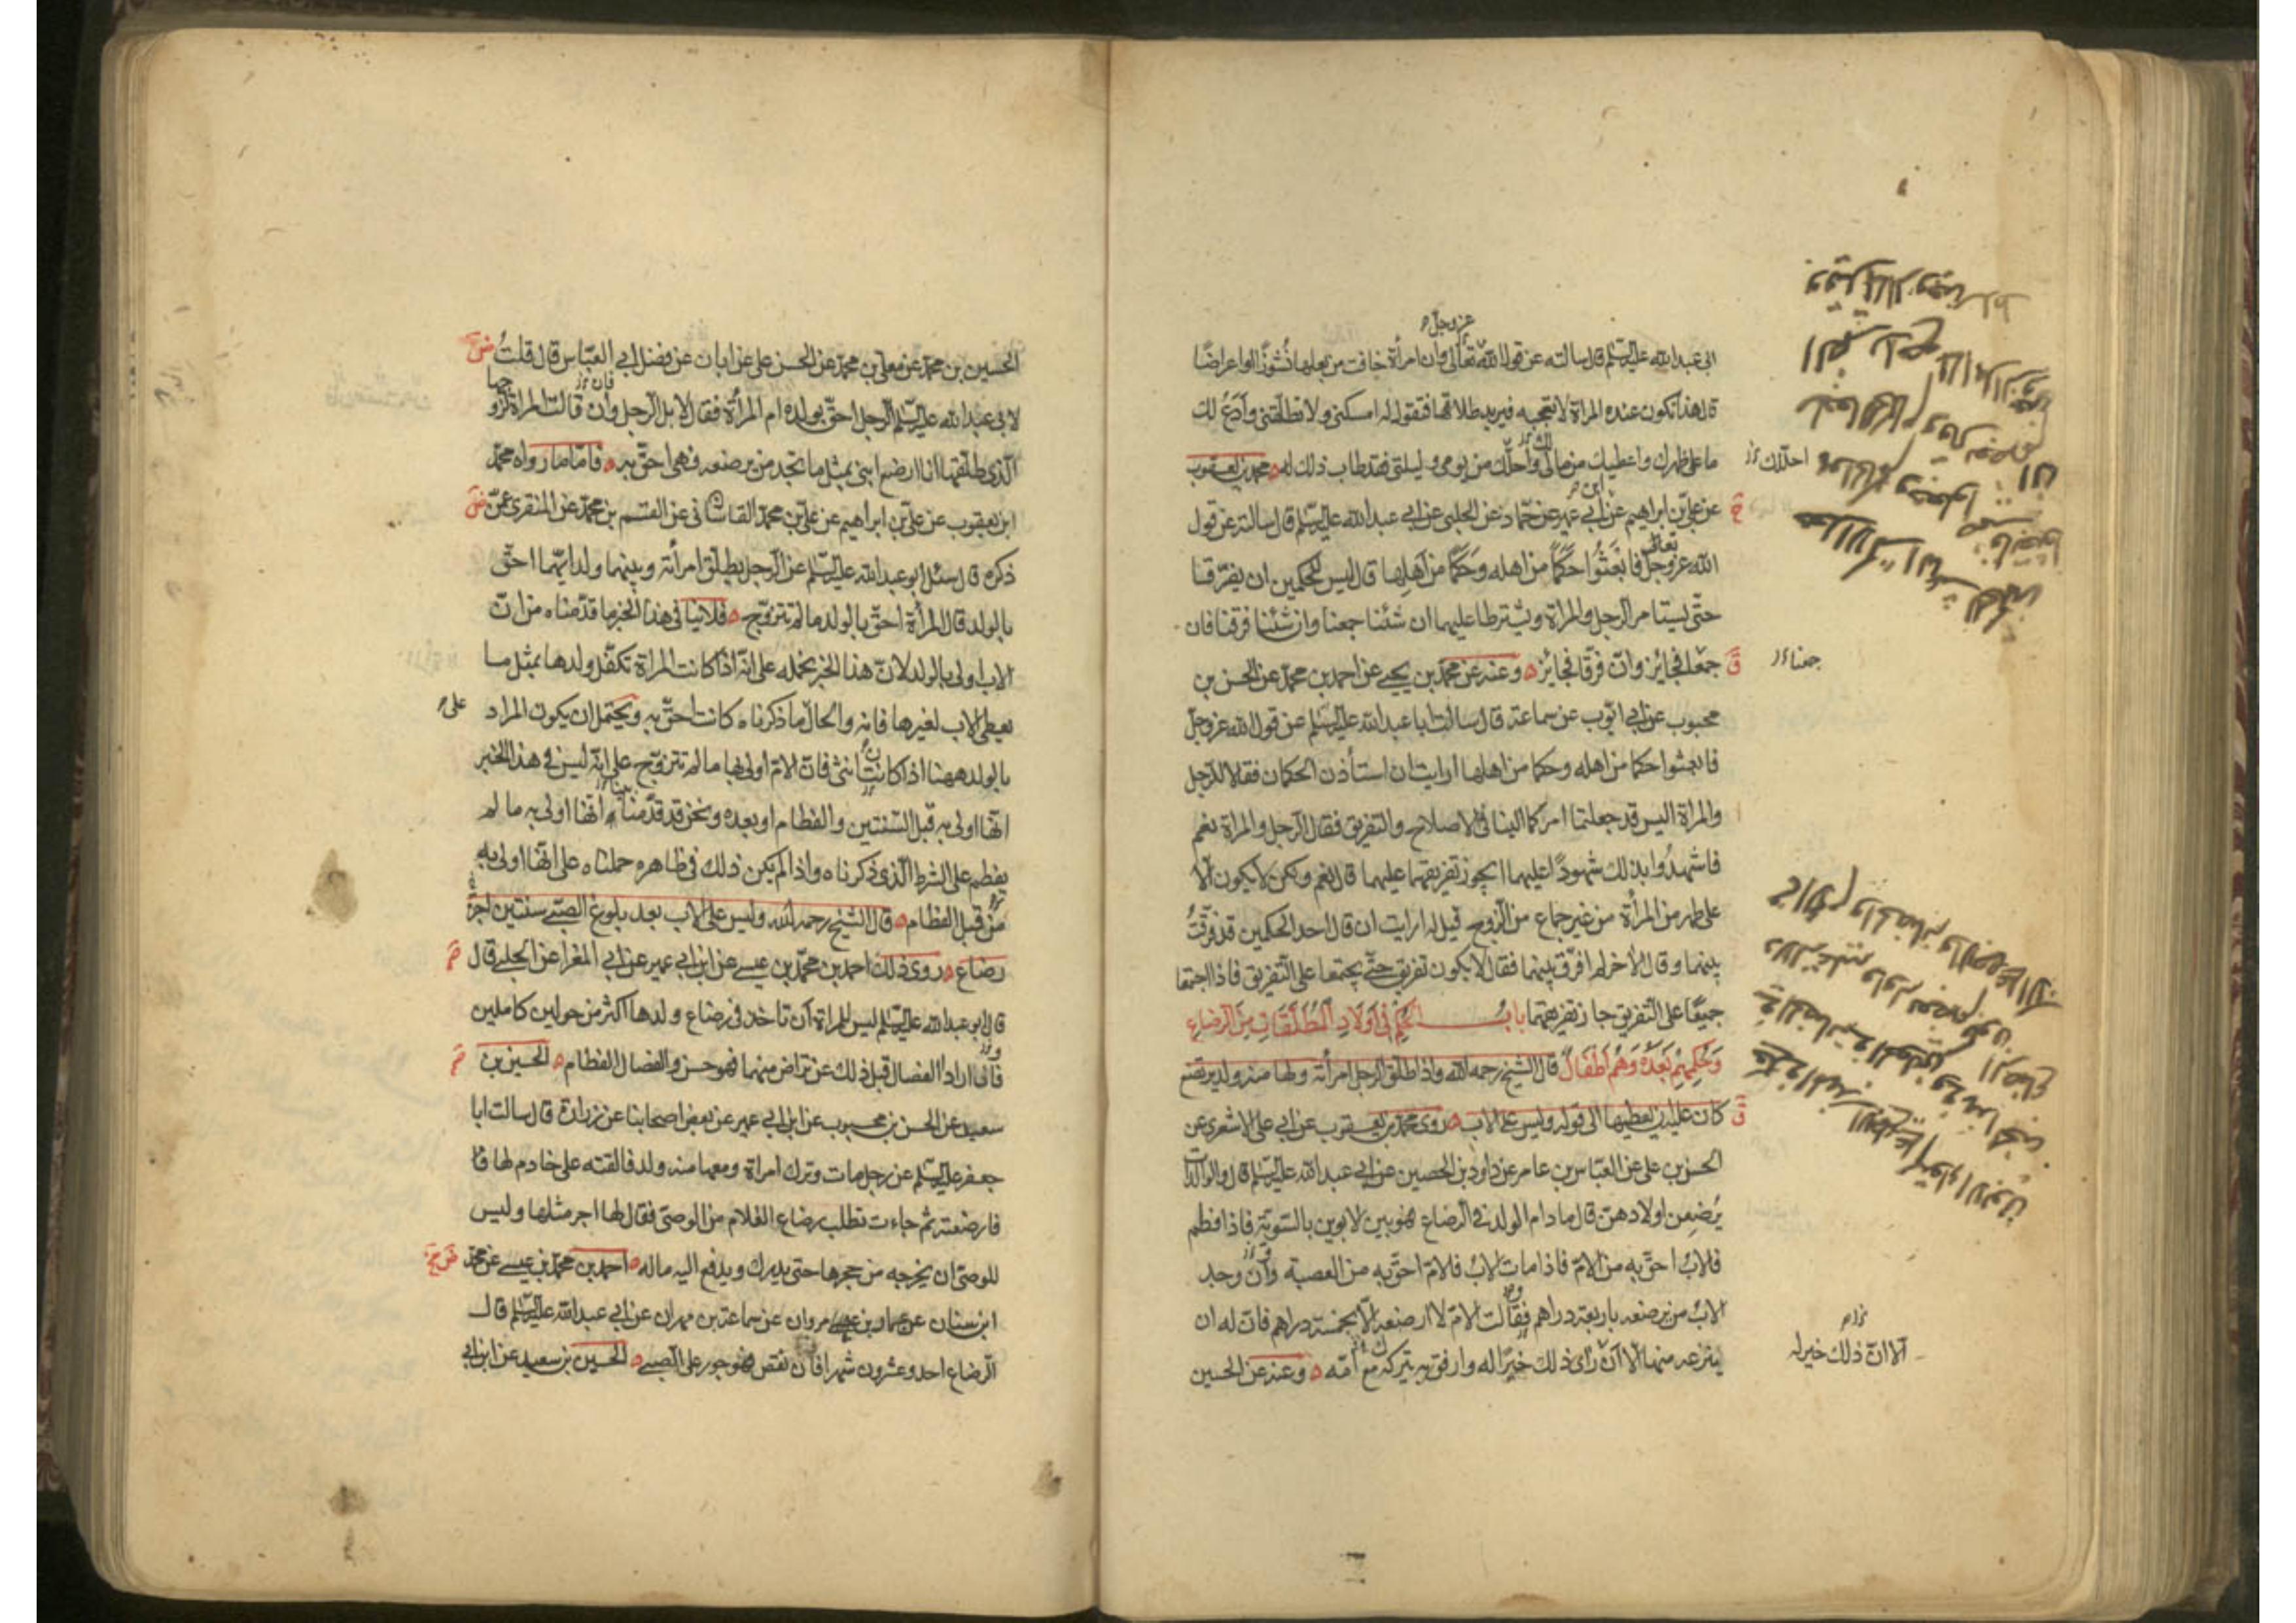 ابى عبدالله عليه السلم قال سالته عن قول الله تعالى وان امراة خافت من بعلها نشوزًا او اعراضًا
عز وجل
قال هذا تكون عنده المراة لا تعجبه فيريد طلاقها فتقول له امسكنى ولا تطلقنى وادع لك
ما على ظهرك واعطيك من مالى واحلك من يومى وليلتى فقد طاب ذلك له محمد بن يعقوب
احللك
عن على بن ابراهيم عن ابى عمير عن حماد عن الحلبى عن ابى عبدالله عليه السلم قال سالته عن قول
ابن
الله عز وجل فابعثوا حكمًا من اهله وحكمًا من اهلها قال ليس للحكمين ان يفرقا
تعالى
حتى يستامرا الرجل والمراة ويشترطا عليهما ان شئنا جمعنا وان شئنا فرقنا فان
جمعا فجايز وان فرقا فجايز وعنه عن محمد بن يحيى عن احمد بن محمد عن الحسن بن
جمعنا
محبوب عن ابى ايوب عن سماعة قال سالت ابا عبدالله عليه السلم عن قول الله عز وجل
فابعثوا حكما من اهله وحكما من اهلها ارايت ان استأذن الحكمان فقالا للرجل
والمراة اليس قد جعلتما امركما الينا فى الاصلاح والتفريق فقال الرجل والمراة نعم
فاشهدوا بذلك شهودًا عليهما ايجوز تفريقهما عليهما قال نعم ولكن لا يكون الا
على طهر من المرأة من غير جماع من الزوج قيل له ارايت ان قال احد الحكمين قد فرقت
بينهما وقال الاخر لم افرق بينهما فقال لا يكون تفريق حتى يجتمعا على التفريق فاذا اجتمعا
جميعًا على التفريق جاز تفريقهما باب الحكم فى اولاد المطلقات من الرضاع
وحكمهم بعده وهم اطفال قال الشيخ رحمه الله واذا طلق الرجل امرأته ولها منه ولد يرتضع
كان عليه ان يعطيها الى قوله وليس على الاب روى محمد بن يعقوب عن ابى على الاشعرى عن
الحسن بن على عن العباس بن عامر عن داود بن الحصين عن ابى عبدالله عليه السلم قال والوالدات
يرضعن اولادهن قال مادام الولد فى الرضاع فهو بين الابوين بالسوية فاذا فطم
فالاب احق به من الام فاذا مات الاب فالام احق به من العصبة وان وجد
الاب من يرضعه باربعة دراهم فقالت الام لا ارضعه الا بخمسة دراهم فان له ان
ينزعه منها الا ان راى ذلك خيرًا له وارفق به تتركه مع امه وعنه عن الحسين
الا ان ذلك خير له
الحسين بن محمد عن معلى بن محمد عن الحسن على عن ابان عن فضل ابى العباس قال قلت
لابى عبدالله عليه السلم الرجل احق بولده ام المرأة فقال لا بل الرجل وان قالت المراة لزوجها
فان
الذى طلقها انا ارضع ابنى بمثل ما تجد من يرضعه فهى احق به فاما ما رواه محمد
ابن يعقوب عن على بن ابراهيم عن على بن محمد القاسانى عن القسم بن محمد عن المنقرى عمن
ذكره قال سئل ابو عبدالله عليه السلم عن الرجل يطلق امرأته وبينهما ولد ايهما احق
بالولد قال المرأة احق بالولد ما لم تتزوج فلا ينافى هذا الخبر ما قدمناه من ان
الاب اولى بالولد لان هذا الخبر نحمله على انه اذا كانت المراة تكفل ولدها بمثل ما
يعطى الاب لغيرها فانه والحال ما ذكرناه كانت احق به ويحتمل ان يكون المراد
على
بالولد ههنا اذا كانت انثى فان الام اولى بها ما لم تتزوج على انه ليس فى هذا الخبر
انها اولى به قبل السنتين والفطام او بعده ونحن قد قدمنا انها اولى به ما لم
يفطم على الشرط الذى ذكرناه واذا لم يكن ذلك فى ظاهره حملناه على انها اولى به
من قبل الفطام قال الشيخ رحمه الله وليس على الاب بعد بلوغ الصبى سنتين اجرة
رضاع روى ذلك احمد بن محمد بن عيسى عن ابن ابى عمير عن ابى المغرا عن الحلبى قال
قال ابو عبدالله عليه السلم ليس للمراة ان تاخذ فى رضاع ولدها اكثر من حولين كاملين
فان ارادا الفصال قبل ذلك عن تراض منهما فهو حسن والفصال الفطام الحسين بن
سعيد عن الحسن بن محبوب عن ابن ابى عمير عن بعض اصحابنا عن زرارة قال سالت ابا
جعفر عليه السلم عن رجل مات وترك امراة ومعها منه ولد فالقته على خادم لها
فارضعته ثم جاءت تطلب رضاع الغلام من الوصى فقال لها اجر مثلها وليس
للوصى ان يخرجه من حجرها حتى يدرك ويدفع اليه ماله احمد بن محمد بن عيسى عن محمد
ابن سنان عن عمار بن مروان عن سماعة بن مهران عن ابى عبدالله عليه السلم قال
الرضاع احد وعشرون شهرا فان نقص فهو جور على الصبى الحسين بن سعيد عن ابن ابى